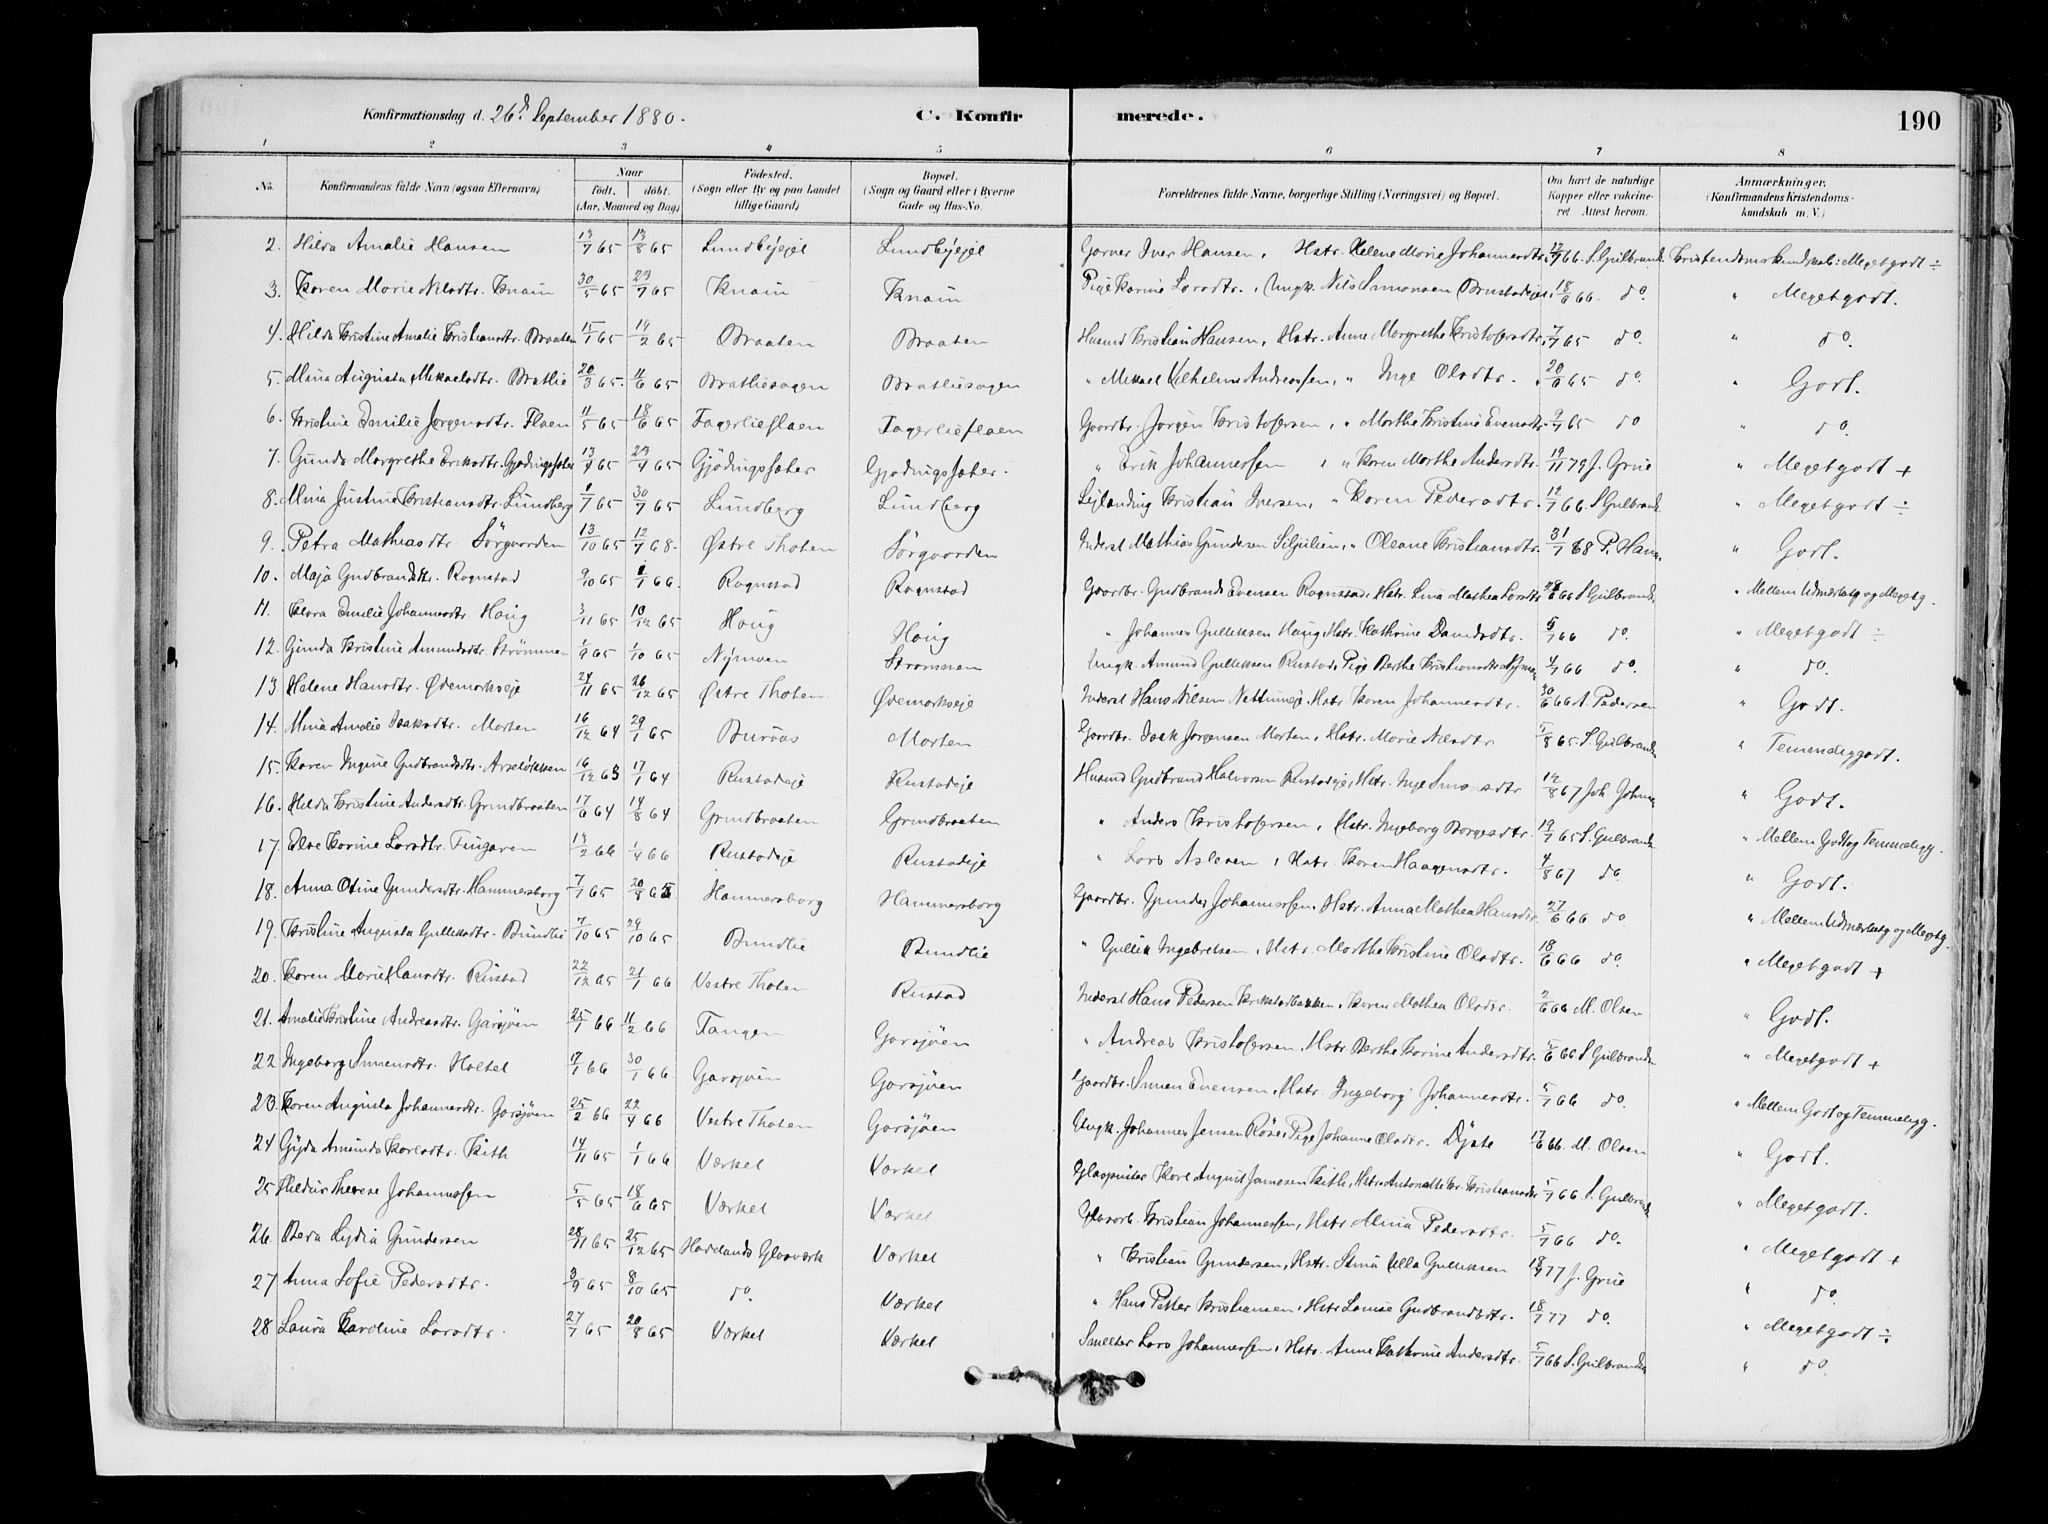 Konfirmationsdag d. 26d September 1880. C. Konfirmerede. 190
1 2 3 4 5 6 7 8
No. Konfirmandens fulde Navn (ogsaa Efternavn) Naar født. døbt. (Aar, Maaned og Dag) Fødested. (Sogn eller By og paa Landet tillige Gaard) Bopæl. (Sogn og Gaard eller i Byerne Gade og Hus-No. Forældrenes fulde Navne, borgerlige Stilling (Næringsvei) og Bopæl. Om havt de naturlige Kopper eller vakcineret Attest herom. Anmærkninger. (Konfirmandens Kristendomskundskab m. V.)
2. Hilda Amalie Hansen 13/7 65 13/8 65 Lundbyejet Lundbyejet Garver Iver Hansen, Hstr. Helene Marie Johannesdtr. 12/7 66. S. Gulbrand. Kristendomskundskab: Megetgodt ÷
3. Karen Marie Nilsdtr. Knain 30/5 65 23/7 65 Knain Knain Pige Karine Larsdtr., Ungk. Nils Simonsen Brustadejet 18/6 66. do. " Megetgodt.
4. Hilda Kristine Amalie Kristiansdtr. Braaten 15/1 65 19/2 65 Braaten Braaten Husmd Kristian Hansen, Hstr. Anne Margrethe Kristofersdtr. 7/7 65 do. " do.
5. Mina Augusta Mikaelsdtr. Bratlie 20/3 65. 11/6 65 Bratliesagen Bratliesagen " Mikael Vilhelm Andreassen, " Inge Olsdtr. 20/6 65 do. " Godt.
6. Kristine Emilie Jørgensdtr. Flaen 11/5 65 18/6 65 Fagerlieflaen Fagerlieflaen Gaardbr. Jørgen Kristofersen, " Marthe Kristine Evensdtr. 9/7 65 do " do.
7. Gunda Margrethe Eriksdtr. Gjødingssæter 13/4 65 23/4 65 Gjødingssæter Gjødingssæter. " Erik Johannessen, " Karen Marthe Andersdtr. 19/11 79 J. Grue " Megetgodt +
8. Mina Justine Kristiansdtr. Lundberg 1/7 65 30/7 65 Lundberg Lundberg Kristian Iversen, " Karen Pedersdtr. 12/7 66. S. Gulbrand. " Megetgodt ÷
9. Petra Mathiasdtr. Sørgaarden 13/10 65 12/7 68. Østre Thoten Sørgaarden Inderst Mathias Gundersen, " Oleane Kristiansdtr. 31/7 68 P. Hans. " Godt.
10. Maja Gudbrandsdtr. Rognstad 9/10 65 1/1 66. Rognstad Rognstad Gaardbr. Gudbrand Evensen Rognstad, Hstr. Lina Mathea Larsdtr. 28/6 66 S. Gulbrands. " Mellem Udmærketg og Megetg.
11. Klara Emilie Johannesdtr. Houg 3/11 65 10/12 65 Houg Houg " Johannes Gulliksen Haug Hstr. Kathrine Davidsdtr. 5/7 66 do. " Megetgodt ÷
12. Gunda Kristine Amundsdtr. Strømmen 1/9 65 1/10 65 Nymoen Strømmen Ungk. Amund Gulliksen Rustad, Pige Berthe Kristiansdtr. Nymoen 4/7 66 do. " do.
13 Helene Hansdtr. Ødemarkseje 24/11 65 26/12 65 Østre Thoten. Ødemarkseje Inderst Hans Nilsen, Hstr. Karen Johannesdtr. 30/6 66 A. Pedersen " Godt.
14. Mina Amalie Isaksdtr. Morten 16/12 64 29/1 65 Buraas Morten Gaardbr. Isak Jørgensen Morten, Hstr. Marie Nilsdtr. 5/8 65. S. Gulbrands. " Temmeliggodt.
15. Karen Ingine Gudbrandsdtr. Aaseløkken 16/12 63 17/1 64 Rustadeje Rustadeje Husmd Gudbrand Halvorsen Rustadeje, Hstr. Inge Simensdtr 12/8 67 Joh. Johns. " Godt.
16. Hilda Kristine Andersdtr. Grindbraaten 17/6 64 14/8 64 Grindbraaten Grindbraaten " Anders Kristofersen, Hstr. Ingeborg Børgesdtr. 19/7 65 S. Gulbrands. " Mellem Godt og Temmeligg.
17. Else Karine Larsdtr. Tingaren 13/2 66 1/4 66 Rustadeje Rustadeje " Lars Aslesen, Hstr. Karen Haagensdtr. 4/8 67 do. " Godt.
18. Anna Otine Gundersdtr. Hammersborg 7/7 65 20/8 65 Hammersborg Hammersborg Gaardbr. Gunder Johannessen, Hstr. Anna Mathea Hansdtr. 27/6 66 do. " Mellem Udmærketg og Megetg.
19. Kristine Augusta Gulliksdtr. Bundlie 7/10 65 29/10 65 Bundlie Bundlie " Gullik Ingebretsen, Hstr. Marthe Kristine Olsdtr. 18/6 66 do. " Megetgodt +
20. Karen Marie Hansdtr. Rustad 22/12 65 21/1 66 Vestre Thoten Rustad Inderst Hans Pedersen, Karen Mathea Olsdtr. 2/6 66 M. Olsen " Godt.
21. Amalie Kristine Andreasdtr. Garsjøen 25/1 66 11/2 66 Tangen Garsjøen " Andreas Kristofersen, Hstr. Berthe Karine Andersdtr. 5/6 66 S. Gulbrands. " Megetgodt +
22 Ingeborg Simensdtr. Holtet 17/1 66 30/1 66 Garsjøen Garsjøen Gaardbr. Simen Evensen, Hstr. Ingeborg Johannesdtr. 5/7 66 do. " Mellem Godt og Temmeligg.
23. Karen Augusta Johannesdtr. Garsjøen 25/2 66 22/4 66 Vestre Thoten Garsjøen Ungk. Johannes Jensen Røise, Pige Johanne Olsdtr. Dyste 17/6 66. M. Olsen " Godt.
24 Gyda Aminda Karlsdtr. Kith 14/11 65 1/1 66 Værket Værket Glaspuster Karl August Jamesen Kith, Hstr. Antonette Kr. Kristiansdtr. 5/7 66 S. Gulbrands. " Megetgodt.
25 Hildur Therese Johannessen 5/5 65 18/6 65 Værket Værket Glasarb. Kristian Johannessen, Hstr. Mina Pedersdtr. 5/7 66 do. " Megetgodt +
26. Bera Lydia Gundersen 28/11 65 25/12 65 Hadelands Glasværk Værket " Kristian Gundersen, Hstr. Stina Ulla Gulliksen 18/9 77 J. Grue " do.
27 Anna Sofie Pedersdtr. 3/9 65 8/10 65 do. Værket " Hans Petter Kristiansen, Hstr. Louise Gudbrandsdtr. 18/7 77 do. " Megetgodt ÷
28 Laura Karoline Larsdtr. 27/7 65 20/8 65 Værket Værket Smelter Lars Johannessen, Hstr. Anne Kathrine Andersdtr. 5/7 66 S. Gulbrands. " do